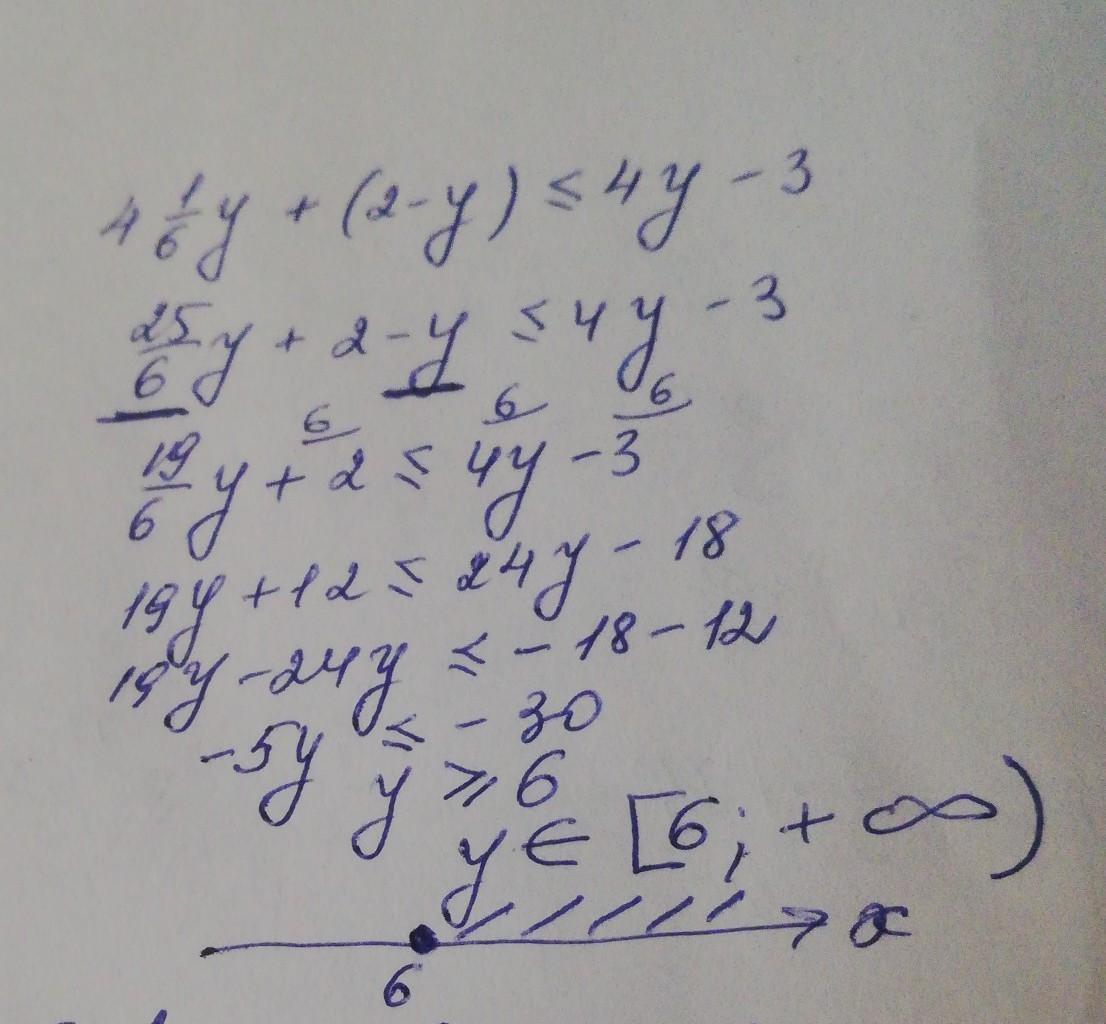 4 1/6 y + (2-y) ≤ 4y - 3
25/6 y + 2 - y ≤ 4y - 3
6 6 6
19/6 y + 2 ≤ 4y - 3
19y + 12 ≤ 24y - 18
19y - 24y ≤ - 18 - 12
-5y ≤ - 30
y ≥ 6
y ∈ [6; + ∞)
x
6